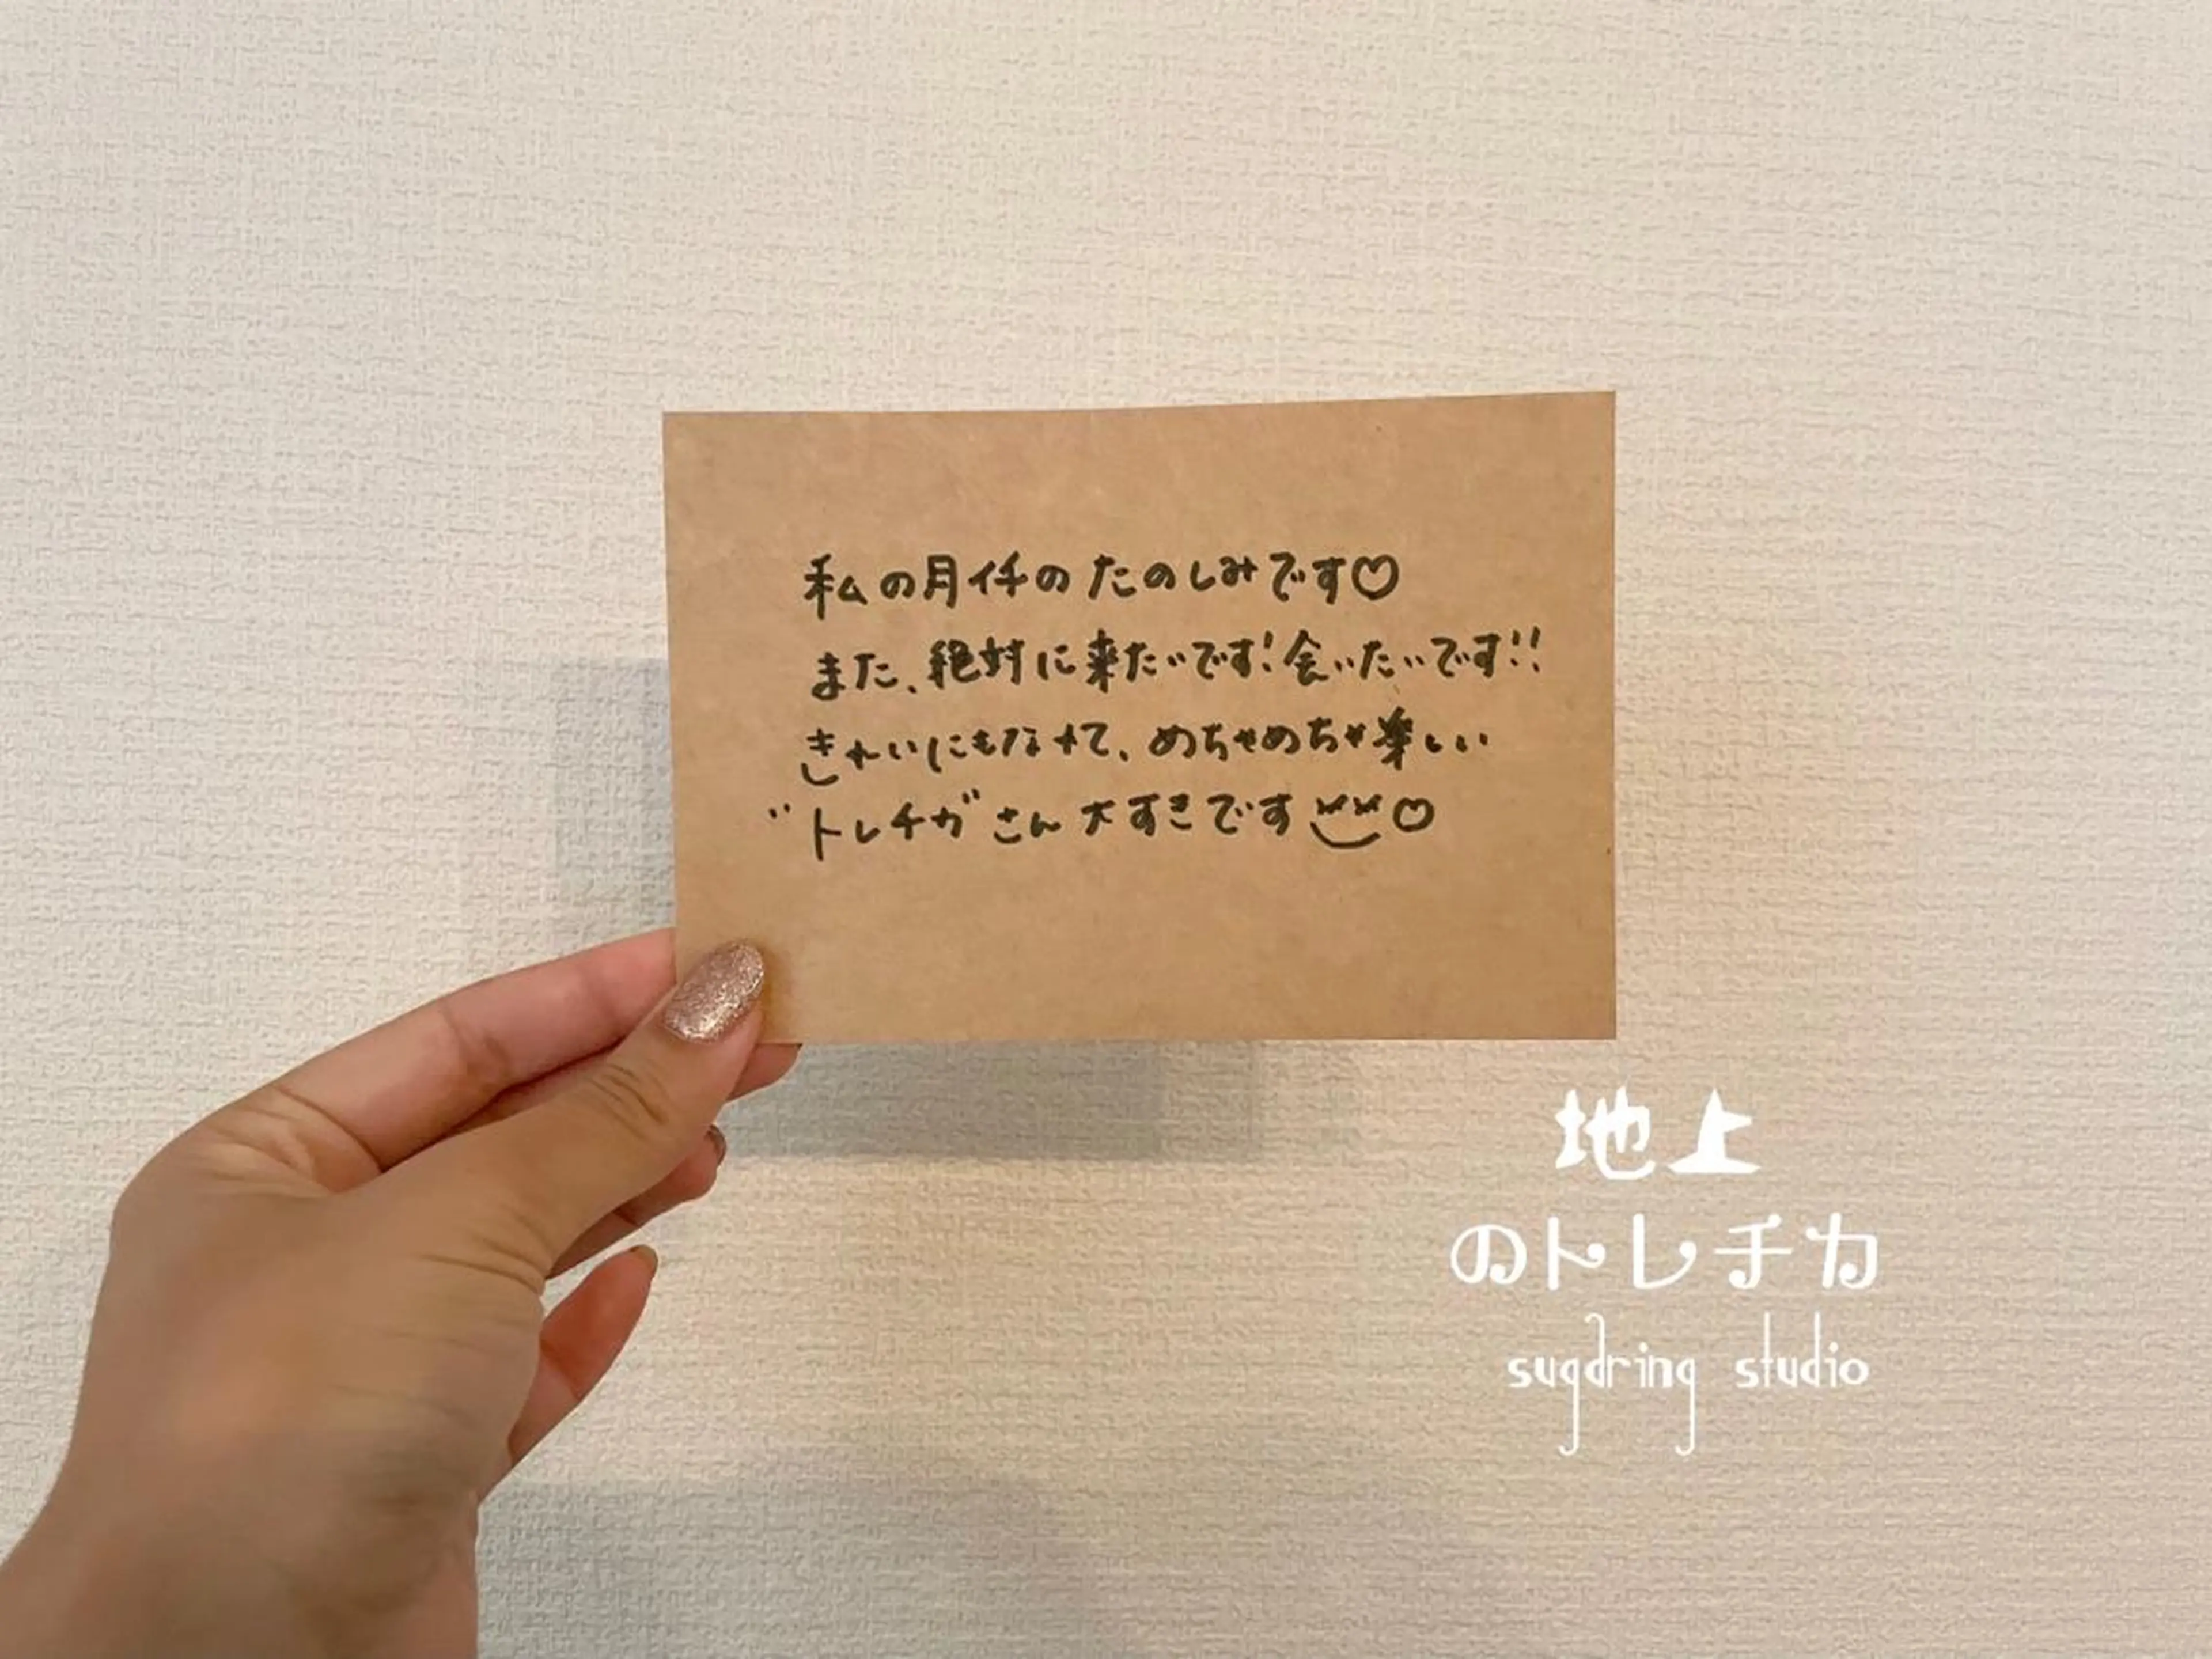 私の月イチのたのしみです♡
また、絶対に来たいです!会いたいです!!
きれいにもなれて、めちゃめちゃ楽しい
"トレチカ"さん大すきです♡
地上
のトレチカ
sugdring studio